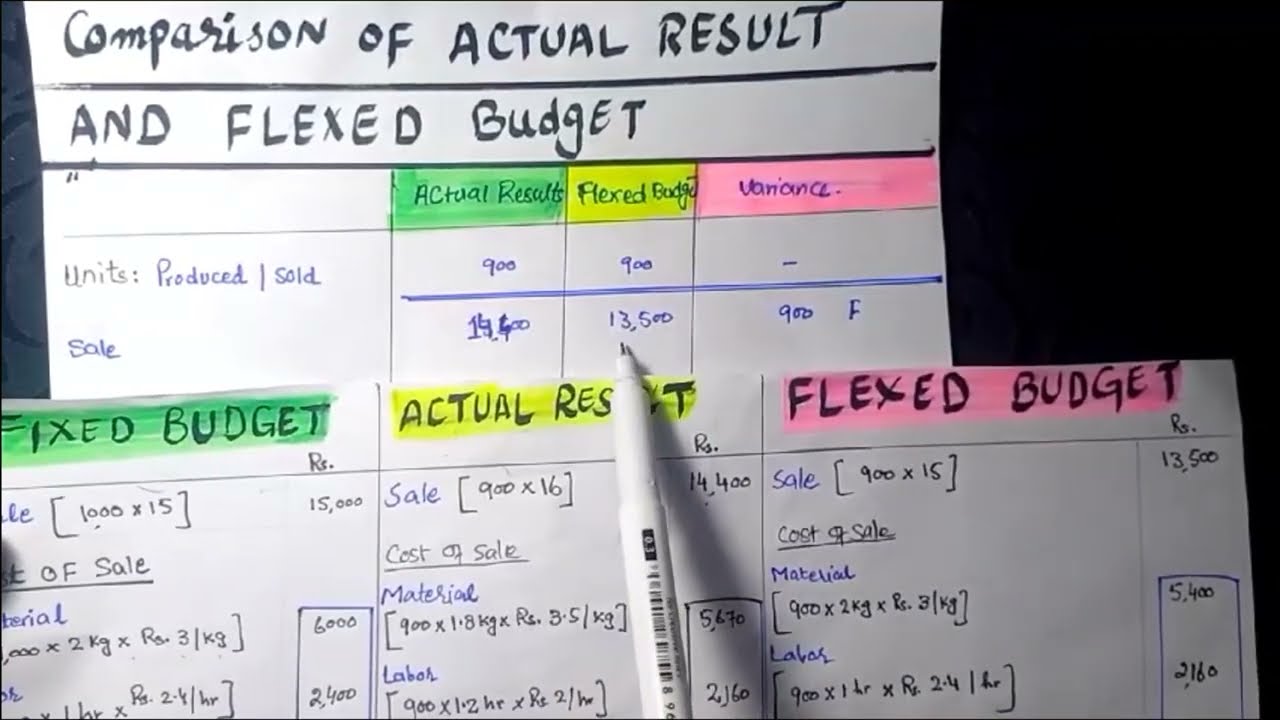 Comparison OF ACTUAL RESULT
AND FLEXED BudgET
Actual Results Flexed Budget Variance.
Units: Produced | Sold 900 900 –
Sale 14,400 13,500 900 F
FIXED BUDGET
Rs.
[1000 x 15] 15,000
OF Sale
6000
x 2 kg x Rs. 3/kg]
2,400
x 1 hr x Rs. 2.4/hr]
ACTUAL RESULT
Rs.
Sale [900 x 16] 14,400
Cost of Sale
Material
[900 x 1.8 kg x Rs. 3.5/kg] 5,670
Labor
[900 x 1.2 hr x Rs. 2/hr] 2,160
FLEXED BUDGET
Rs.
Sale [900 x 15] 13,500
Cost of Sale
Material
[900 x 2 kg x Rs. 3/kg] 5,400
Labor
[900 x 1 hr x Rs. 2.4/hr] 2,160
0.3